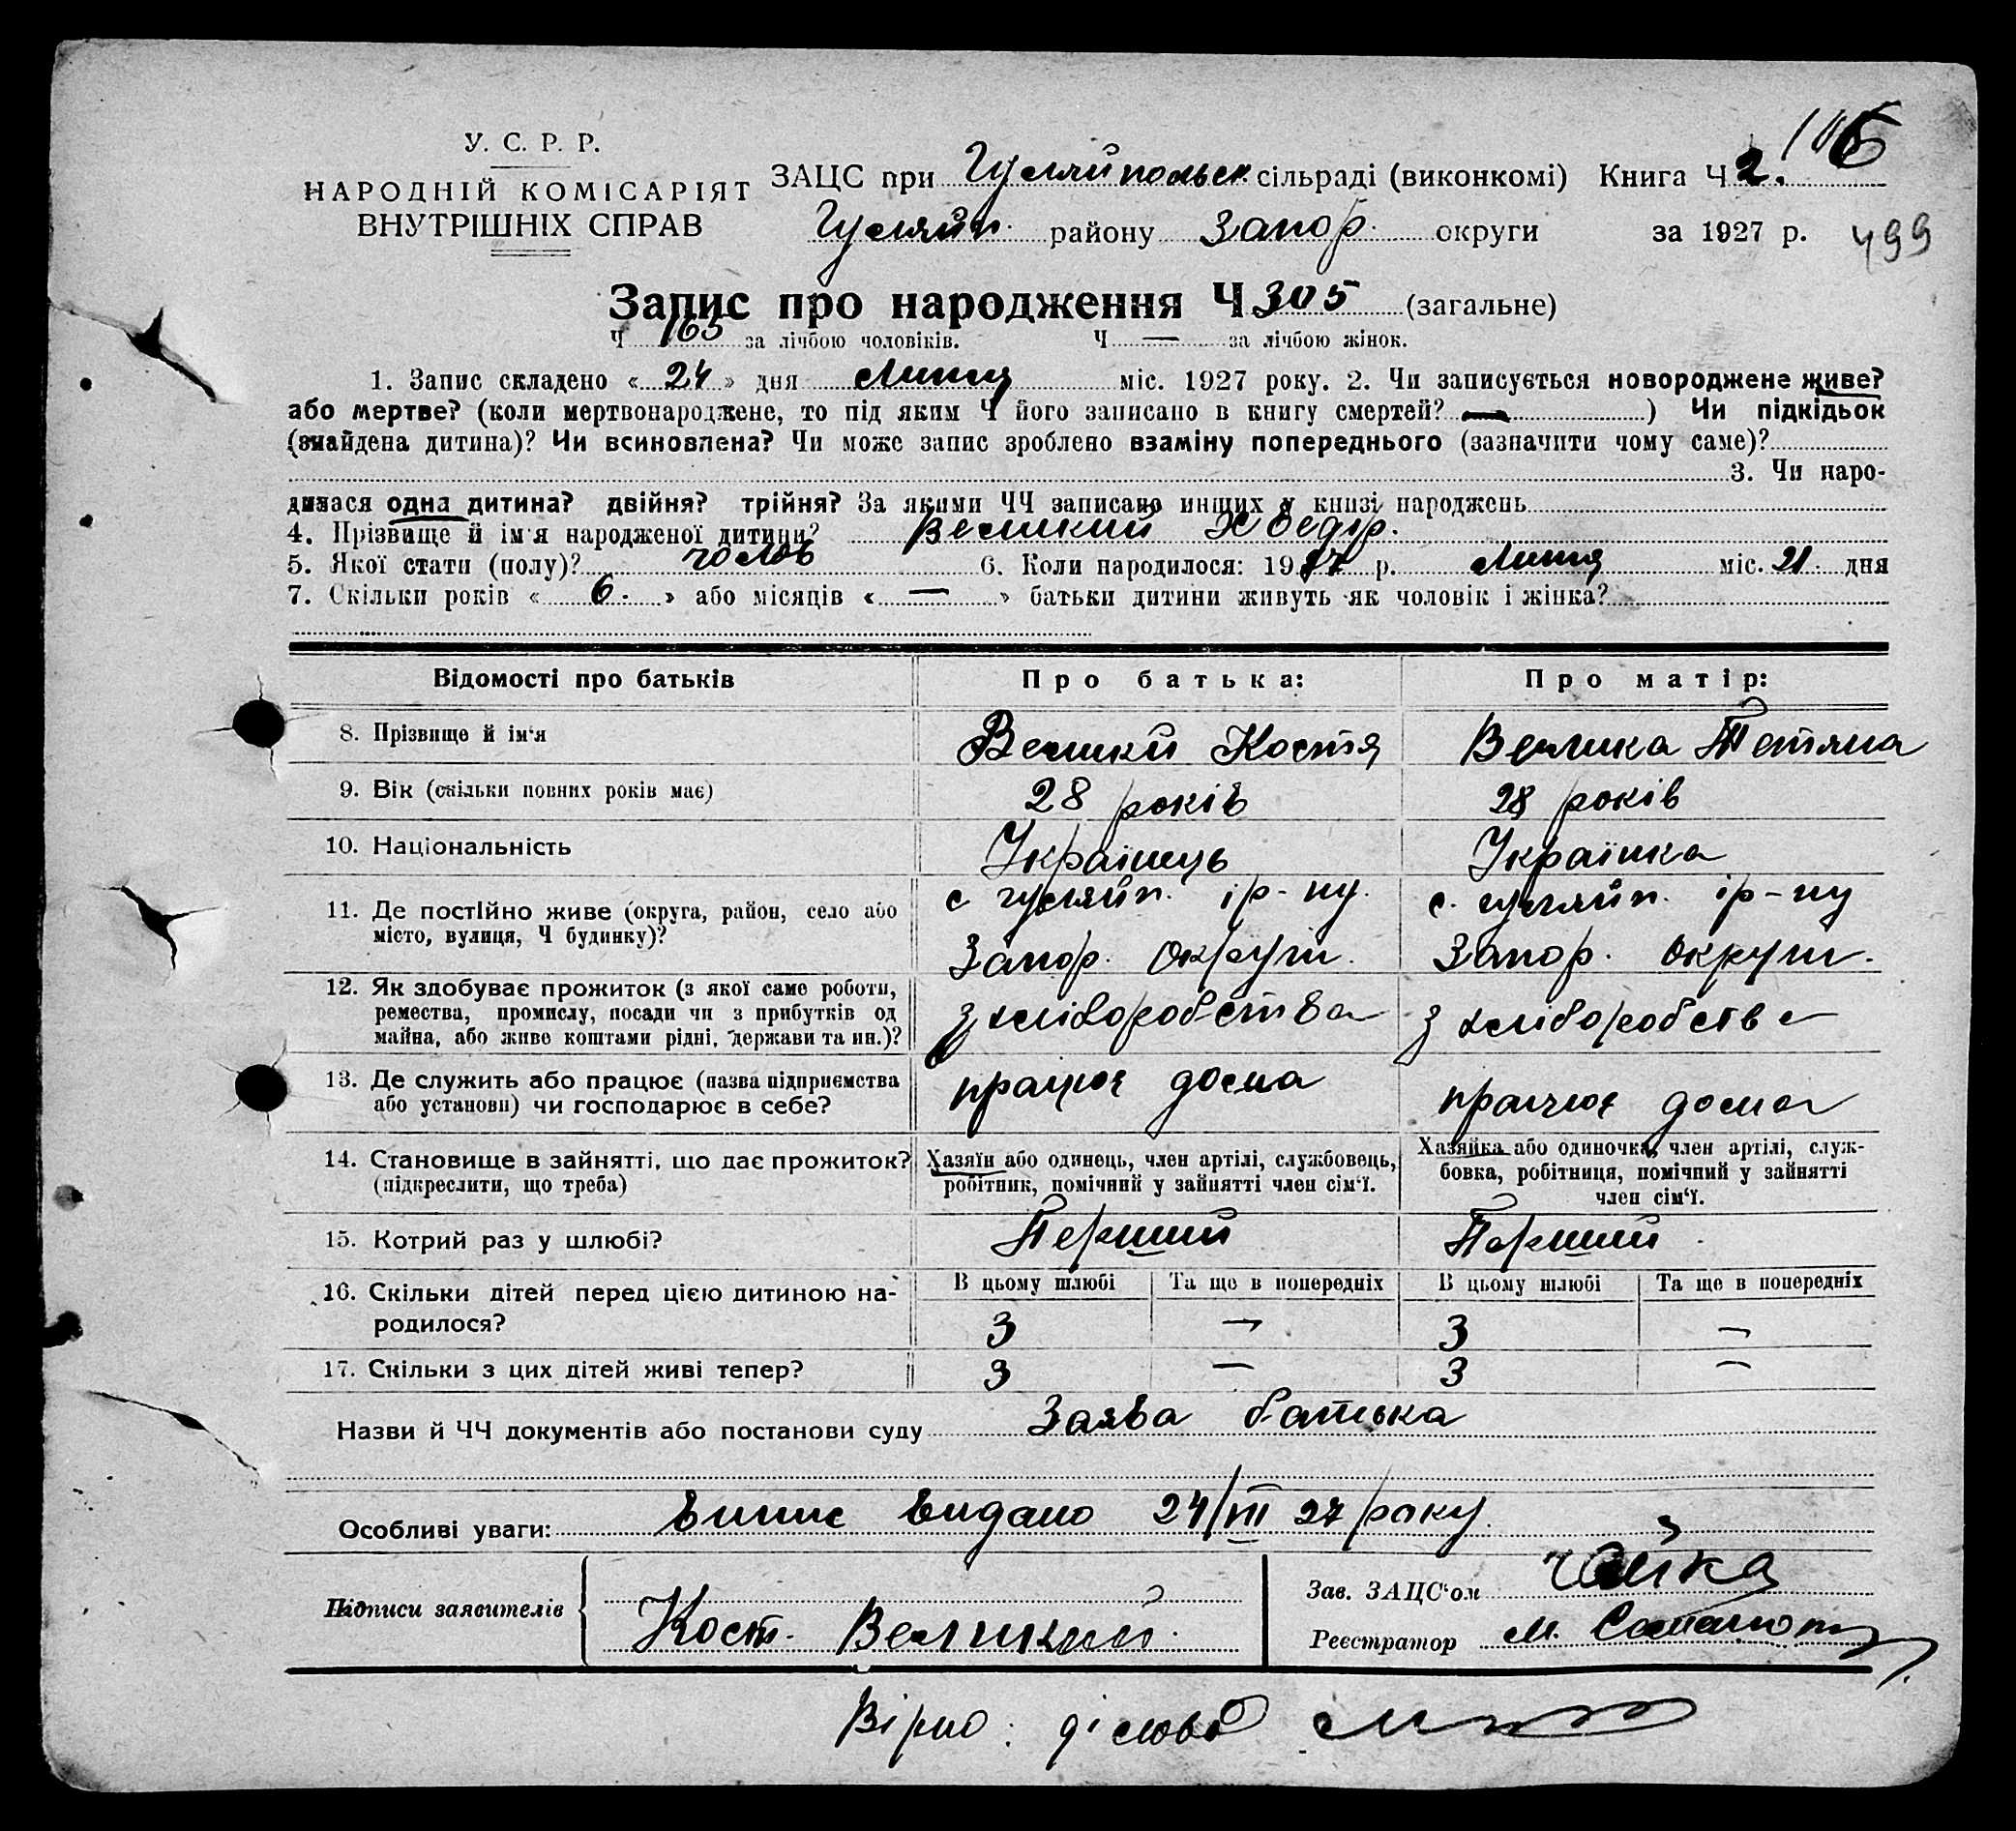 У. С. Р. Р.
НАРОДНІЙ КОМІСАРІЯТ
ВНУТРІШНІХ СПРАВ
ЗАЦС при Гуляйпольск. сільраді (виконкомі) Книга Ч 2.
Гуляйп. району Запор. округи за 1927 р. 499
Запис про народження Ч 305 (загальне)
Ч 165 за лічбою чоловіків. Ч — за лічбою жінок.
1. Запис складено « 24 » дня Липця міс. 1927 року. 2. Чи записується новороджене живе?
або мертве? (коли мертвонароджене, то під яким Ч його записано в книгу смертей? — ) Чи підкідьок
(знайдена дитина)? Чи всиновлена? Чи може запис зроблено взаміну попереднього (зазначити чому саме)?
3. Чи наро-
дилася одна дитина? двійня? трійня? За якими ЧЧ записано инших у книзі народжень
4. Прізвище й ім'я народженої дитини? Великий Хведір.
5. Якої стати (полу)? чолов 6. Коли народилося: 1927 р. Липця міс. 21. дня
7. Скільки років « 6. » або місяців « — » батьки дитини живуть як чоловік і жінка?
Відомості про батьків Про батька: Про матір:
8. Прізвище й ім'я Великий Костя Велика Тетяна
9. Вік (скільки повних років має) 28 років 28 років
10. Національність Українець Українка
11. Де постійно живе (округа, район, село або місто, вулиця, Ч будинку)? с. гуляйп. ір-ну. Запор. округи. с. гуляйп. ір-ну Запор. округи.
12. Як здобуває прожиток (з якої саме роботи, ремества, промислу, посади чи з прибутків од майна, або живе коштами рідні, держави та ин.)? З хліборобства З хліборобства
13. Де служить або працює (назва підприємства або установи) чи господарює в себе? працює дома працює дома
14. Становище в зайнятті, що дає прожиток? (підкреслити, що треба) Хазяїн або одинець, член артілі, службовець, робітник, помічний у зайнятті член сім'ї. Хазяйка або одиночка, член артілі, служ-бовка, робітниця, помічний у зайнятті член сім'ї.
15. Котрий раз у шлюбі? Перший Перший
16. Скільки дітей перед цією дитиною на-родилося? В цьому шлюбі Та ще в попередніх В цьому шлюбі Та ще в попередніх
3 — 3 —
17. Скільки з цих дітей живі тепер? 3 — 3 —
Назви й ЧЧ документів або постанови суду Заява батька
Особливі уваги: Випис видано 24/VII 27 року.
Підписи заявителів Кост. Великий.
Зав. ЗАЦС'ом Чайка
Реєстратор М.
Вірно: діловод